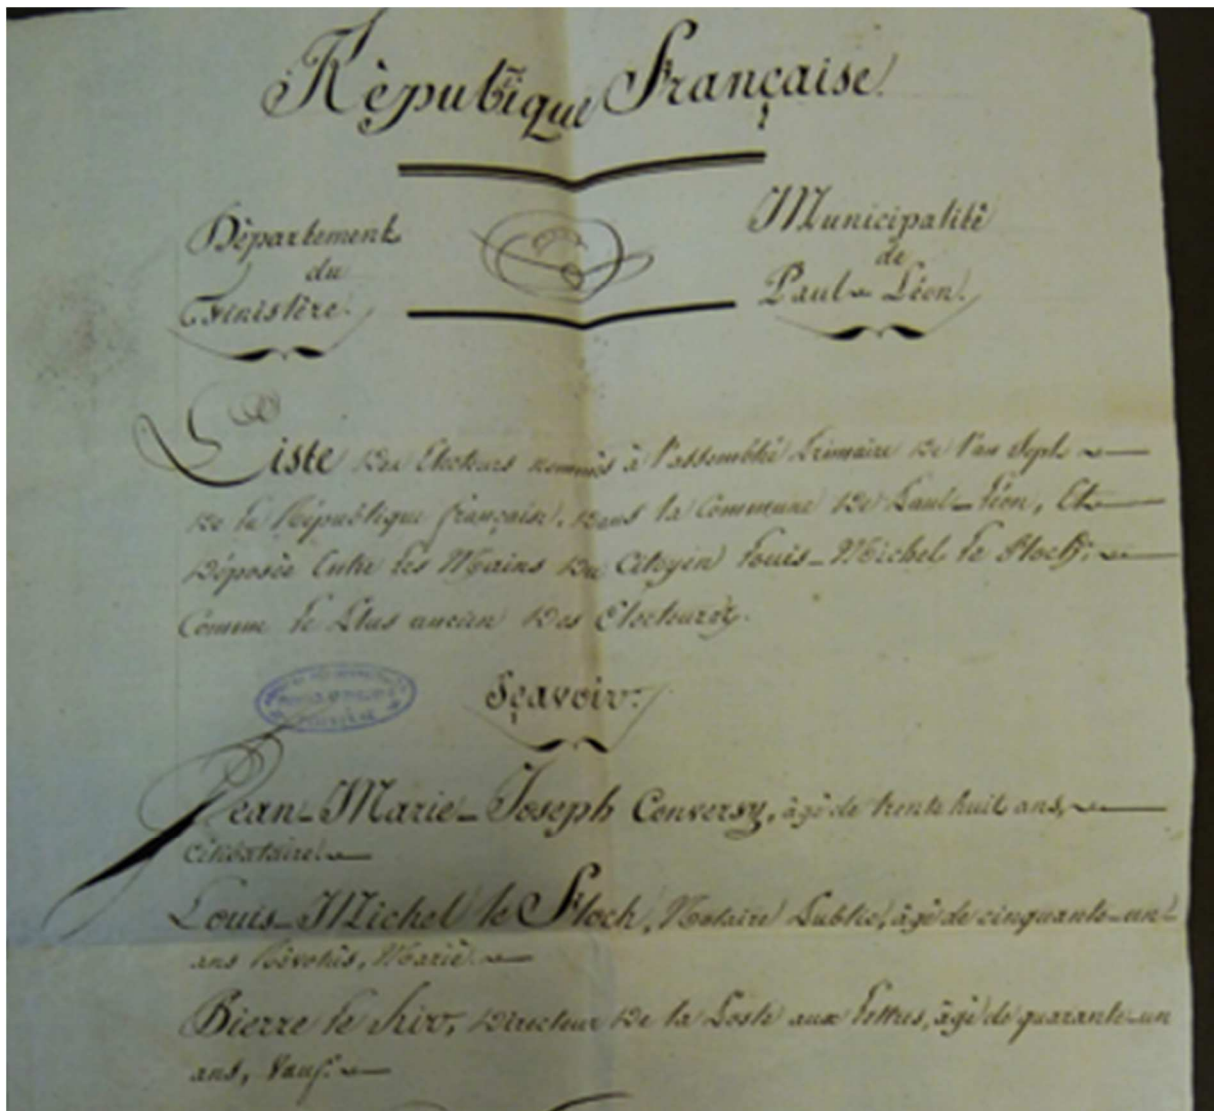 République Française.
Département
du
Finistère.
Municipalité
de
Paul-Léon.
Liste des Electeurs nommés à l'assemblée Primaire de l'an Sept
de la République française, dans la Commune de Paul-Léon, Et
Déposée Entre les Mains du Citoyen Louis-Michel le Floch,
Comme le Plus ancien des Electeurs.
Sçavoir:
Jean-Marie-Joseph Conversy, âgé de trente huit ans,
célibataire.
Louis-Michel le Floch, Notaire Public, âgé de cinquante-un
ans Révolus, Marié.
Pierre le hir, Directeur de la Poste aux Lettres, âgé de quarante-un
ans, Vauf.